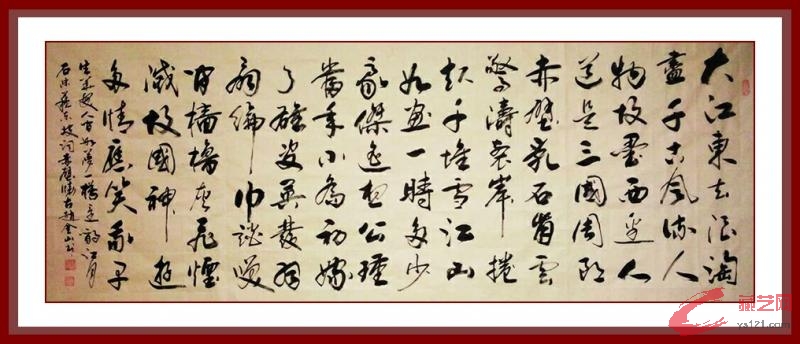 大江東去浪淘
盡千古風流人
物故壘西邊人
道是三國周郎
赤壁亂石崩雲
驚濤裂岸捲
起千堆雪江山
如畫一時多少
豪傑遙想公瑾
當年小喬初嫁
了雄姿英發羽
扇綸巾談笑
間檣櫓灰飛煙
滅故國神遊
多情應笑我早
生華髮人間如夢一樽還酹江月
蘇東坡詞赤壁懷古趙金山書
藏艺网